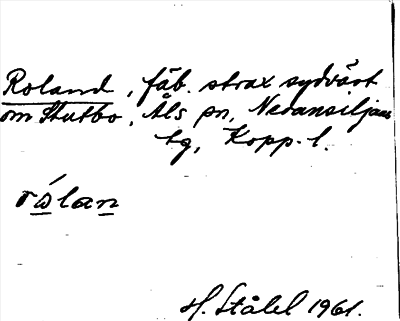 Roland, fäb. strax sydväst
om Stutbo, Åls sn, Nedansiljans
tg, Kopp. l.
rólan
H. Ståhl 1961.